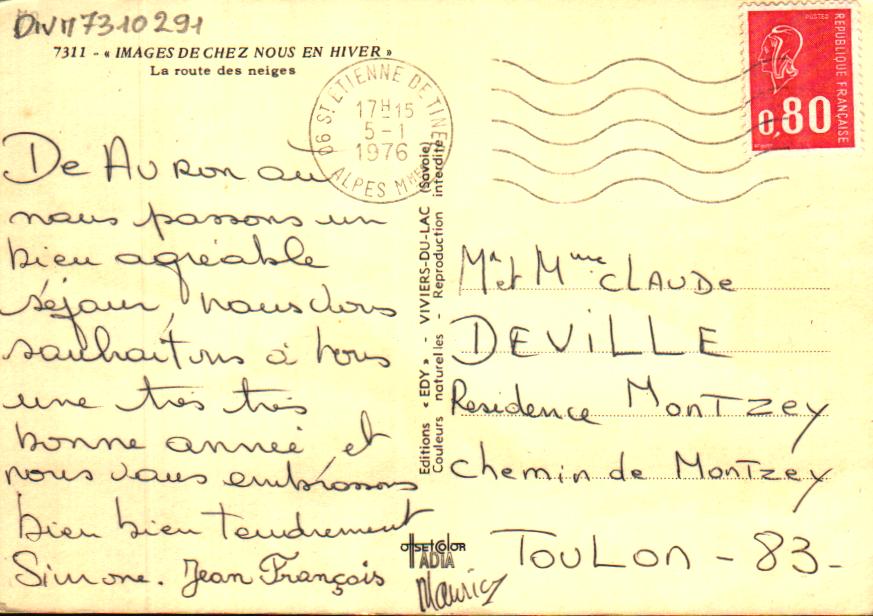 DIVM7310291
7311 - « IMAGES DE CHEZ NOUS EN HIVER »
La route des neiges
06 ST ETIENNE DE TINEE
17H15
5-1
1976
ALPES MMES
POSTES
REPUBLIQUE FRANÇAISE
0,80
De Auron où
nous passons un
bien agréable
séjour, nous vous
souhaitons à tous
une très très
bonne année et
nous vous embrassons
bien bien tendrement
Simone. Jean François
Maurice
Editions « EDY » - VIVIERS-DU-LAC (Savoie)
Couleurs naturelles - Reproduction interdite
OffSETCOLOR
ADIA
Mr et Mme CLAUDE
DEVILLE
Residence MonTzey
Chemin de MonTzey
TouLon - 83 -